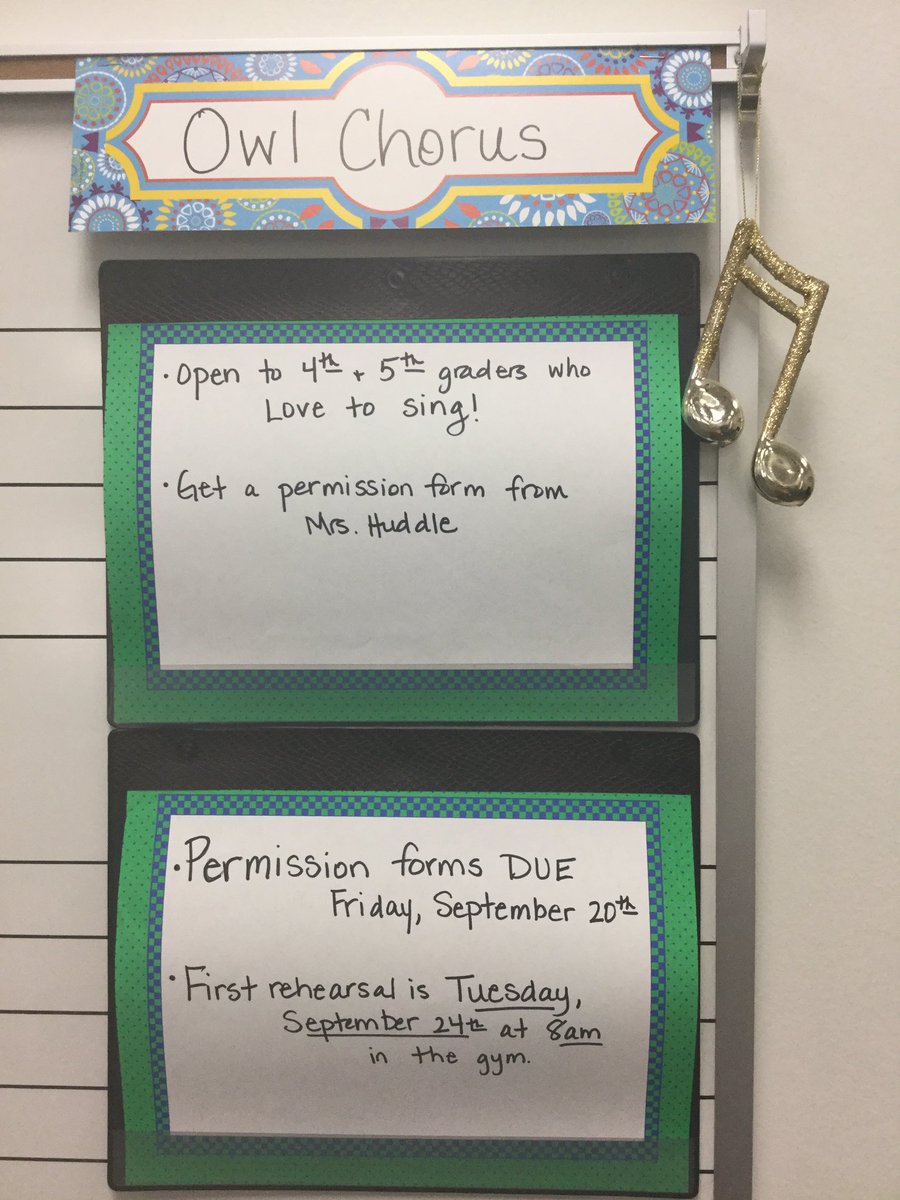 Owl Chorus
· Open to 4th + 5th graders who
Love to sing!
· Get a permission form from
Mrs. Huddle
· Permission forms DUE
Friday, September 20th
· First rehearsal is Tuesday,
September 24th at 8am
in the gym.